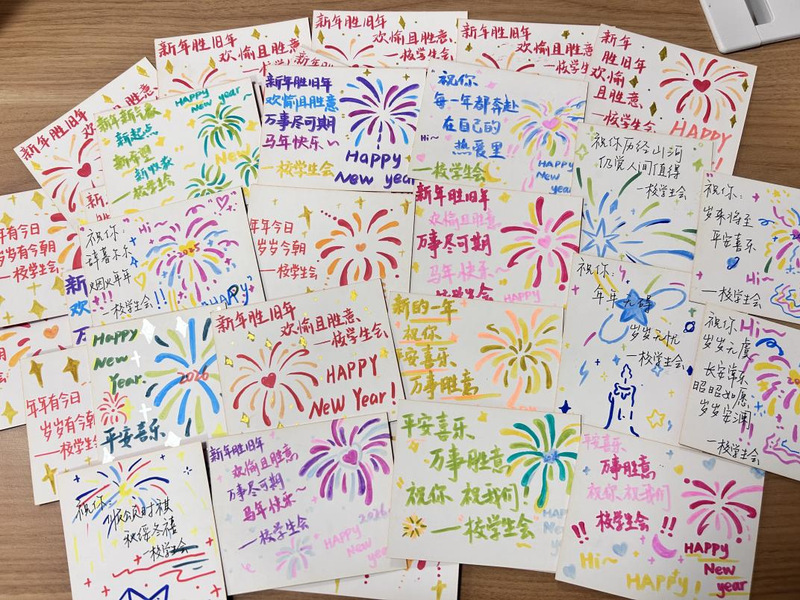 新年胜旧年
欢愉且胜意
新年胜旧年
欢愉且胜意
新年胜旧年
新年胜旧年
欢愉
且胜意,
一枚学生会
HAPPY
新年胜旧年
Happy
New year
新起点
新希望
新收获
一枚学生会
New
新年胜旧年
欢愉且胜意
万事尽可期
马年快乐~
一枚学生会
Happy
New year
祝你
每一年都奔赴
在自己的
热爱里
一枚学生会
Hi~
HAPPY
New
year
祝你历经山河
仍觉人间值得
一枚学生会
祝你:
岁末将至
平安喜乐
一枚学生会
年有今日
岁有今朝
一枚学生会
祝你:
辞暮尔尔
烟火年年
一枚学生会!!
2025
HAPPY
年有今日
岁岁今朝
一枚学生会
新年胜旧年
欢愉且胜意
万事尽可期
马年快乐~
一枚学生会
HAPPY
祝你:
年年无碍
岁岁无忧
一枚学生会
祝你: Hi~
岁岁无虞
长安常乐
昭昭如愿
岁岁安澜
一枚学生会
Happy
New
Year.
2026
平安喜乐
新年胜旧年
欢愉且胜意
一枚学生会
HAPPY
New Year!
新的一年
祝你
平安喜乐
万事胜意
年年有今日
岁岁有今朝
一枚学生会
祝你:
顺颂时祺
秋绥冬禧
一枚学生会
新年胜旧年
欢愉且胜意
万事尽可期
马年快乐~
一枚学生会
2026
happy
New year
平安喜乐
万事胜意
祝你 祝我们!
一枚学生会
HAPPY
New
year
平安喜乐
万事胜意
祝你 祝我们
一枚学生会!!
Hi~
HAPPY
HAPPY
New
year